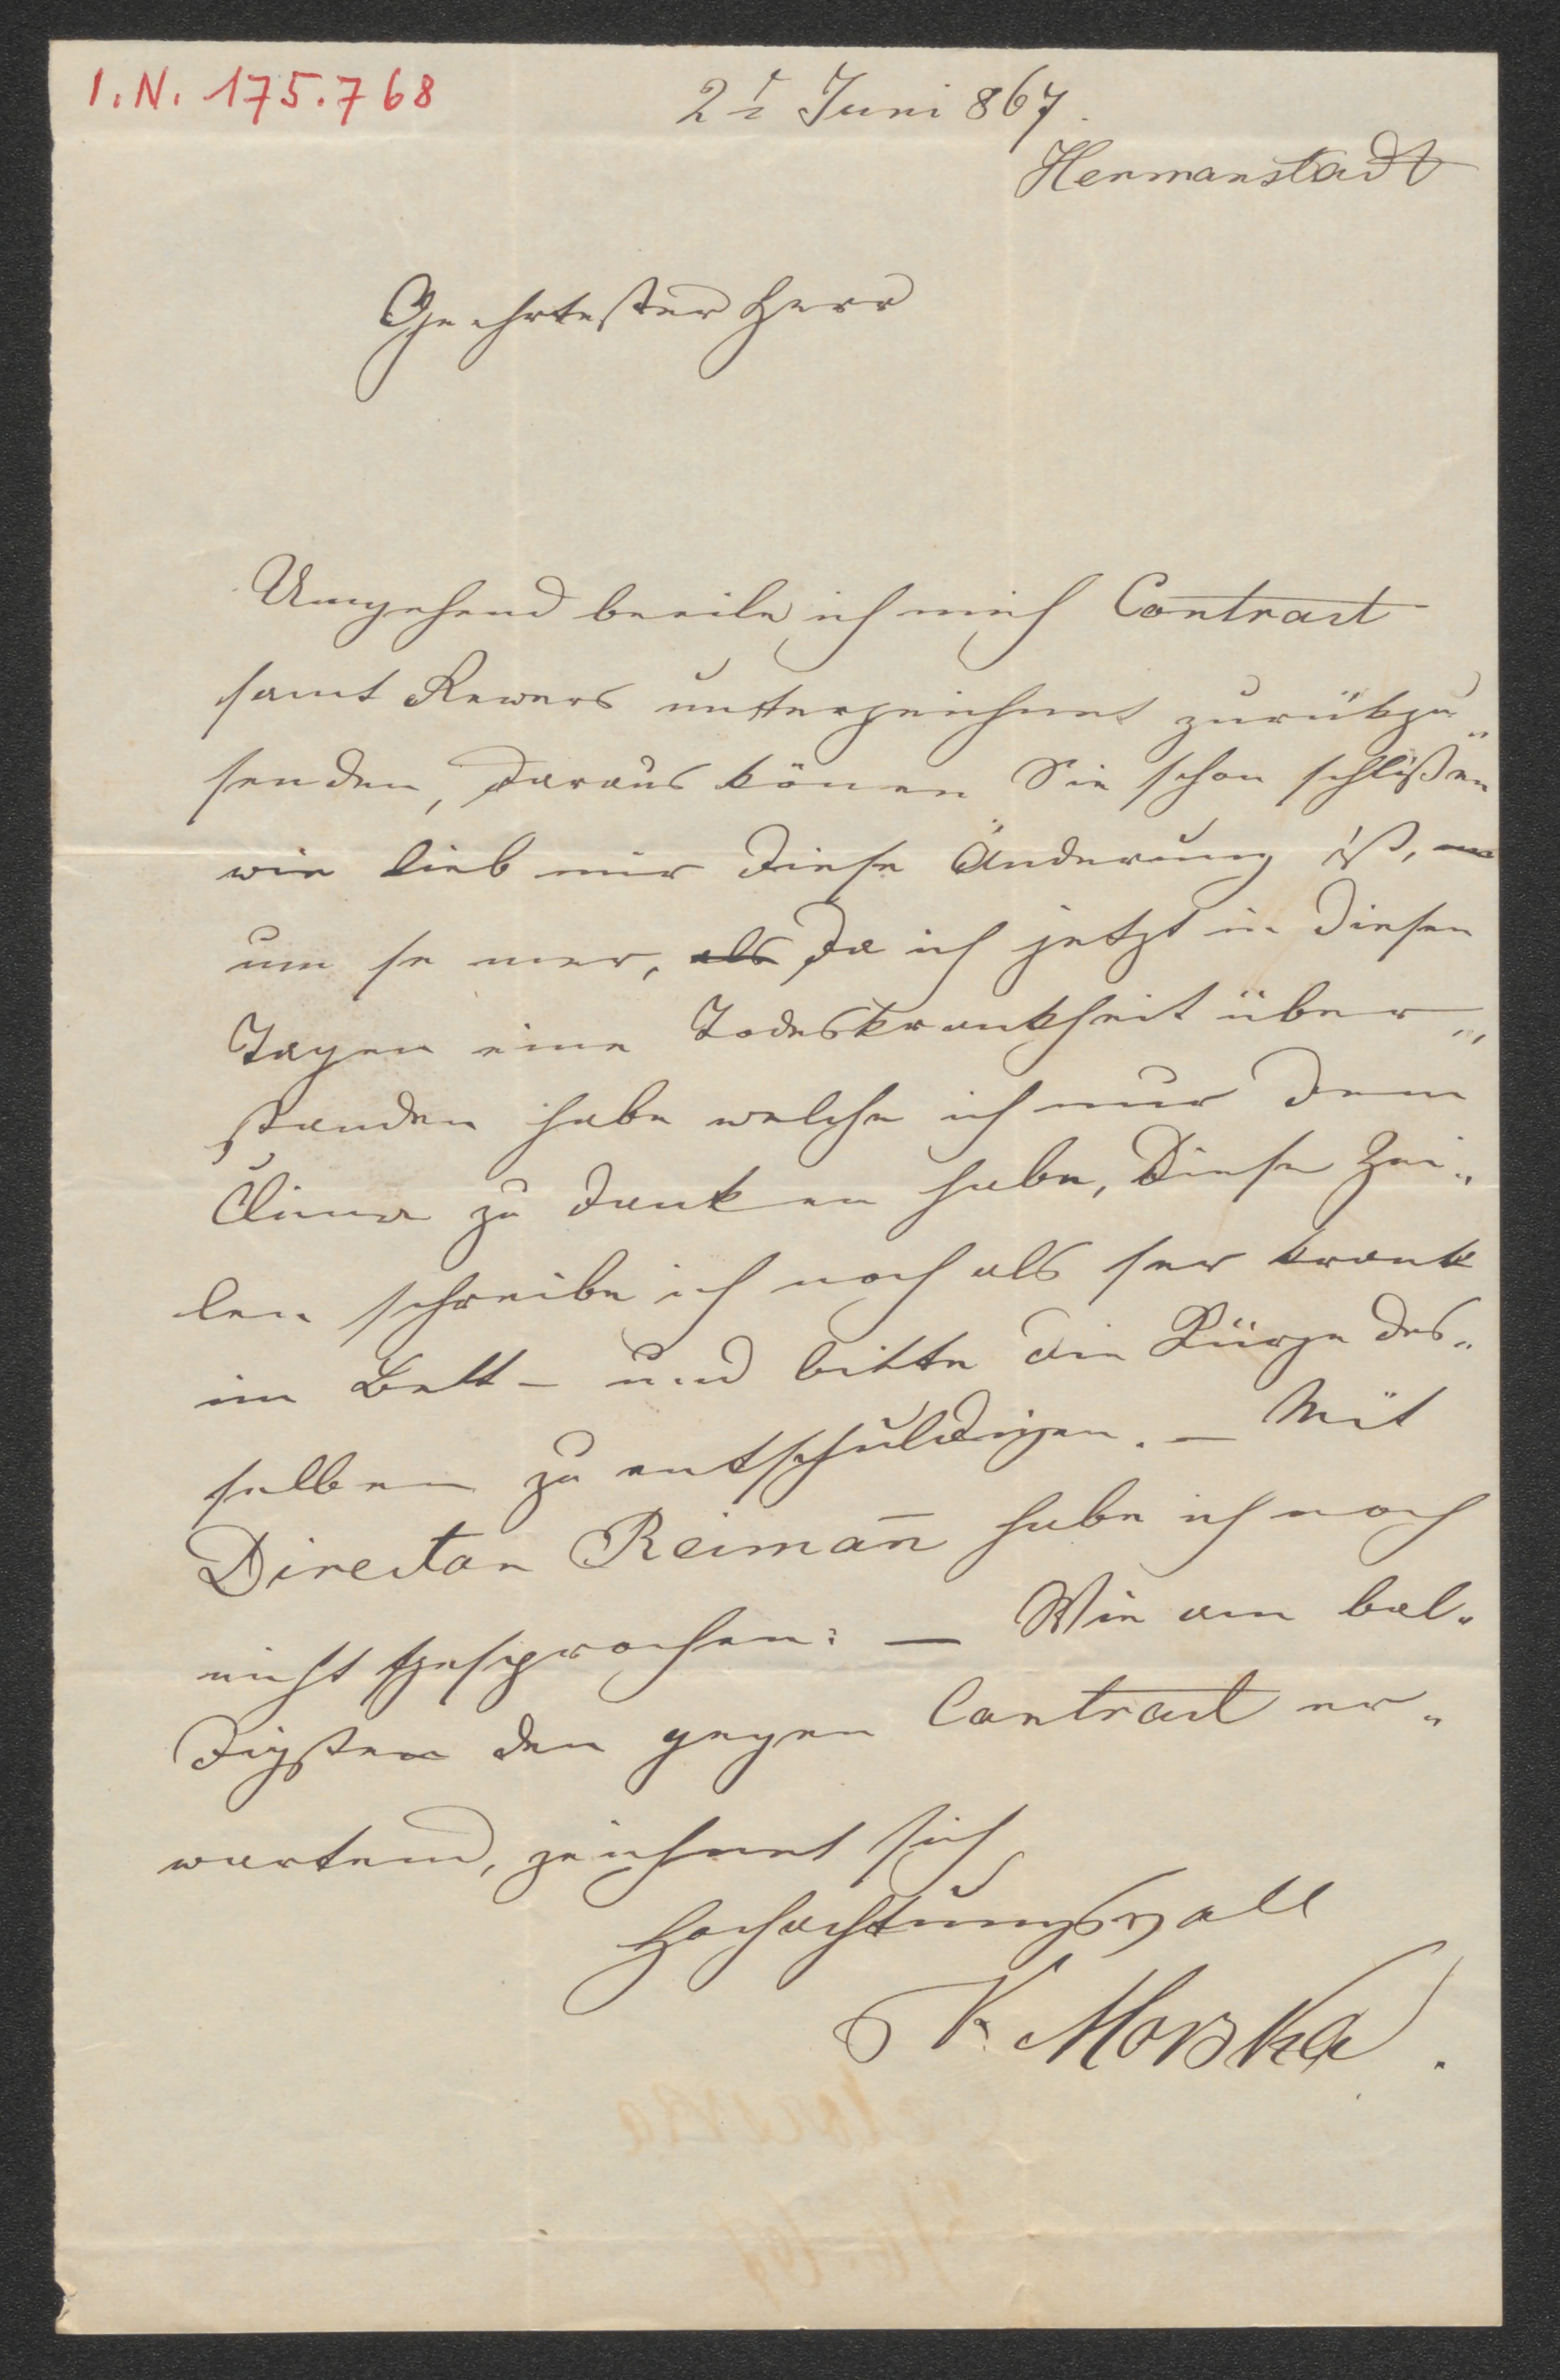 I.N. 175.768
2t Juni 867.
Hermanstadt
Geehrtester Herr
Umgehend beeile ich mich Contract
samt Rewers unterzeichnet zurükzu„
senden, daraus könen Sie schon schlißen
wie lieb mir diese Änderung ist,
um so mer, als da ich jetzt in diesen
Tagen eine Todeskrankheit über„
standen habe welche ich nur dem
Clima zu danken habe, Diese Zei„
len schreibe ich noch als ser krank
im Bett – und bitte die Kürze des„
selben zu entschuldigen. – Mit
Director Reiman̄ habe ich noch
nicht gesprochen: – Wie am bal„
digsten den gegen Contract er„
wartend, zeichnet sich
Hochachtungsvoll
K. Morska.